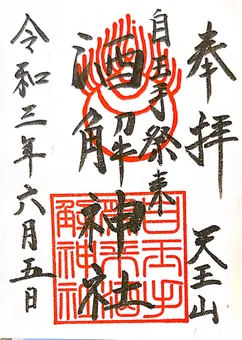 奉拝 天王山
自玉手祭来
酒解神社
令和三年六月五日
自玉手
祭来酒
解神社